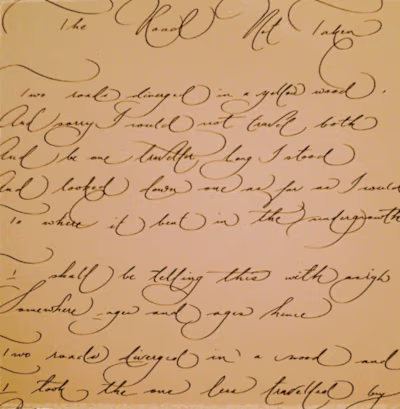 The Road Not Taken
Two roads diverged in a yellow wood,
And sorry I could not travel both
And be one traveller long I stood
And looked down one as far as I could
To where it bent in the undergrowth
I shall be telling this with a sigh
Somewhere ages and ages hence
Two roads diverged in a wood and
I took the one less travelled by